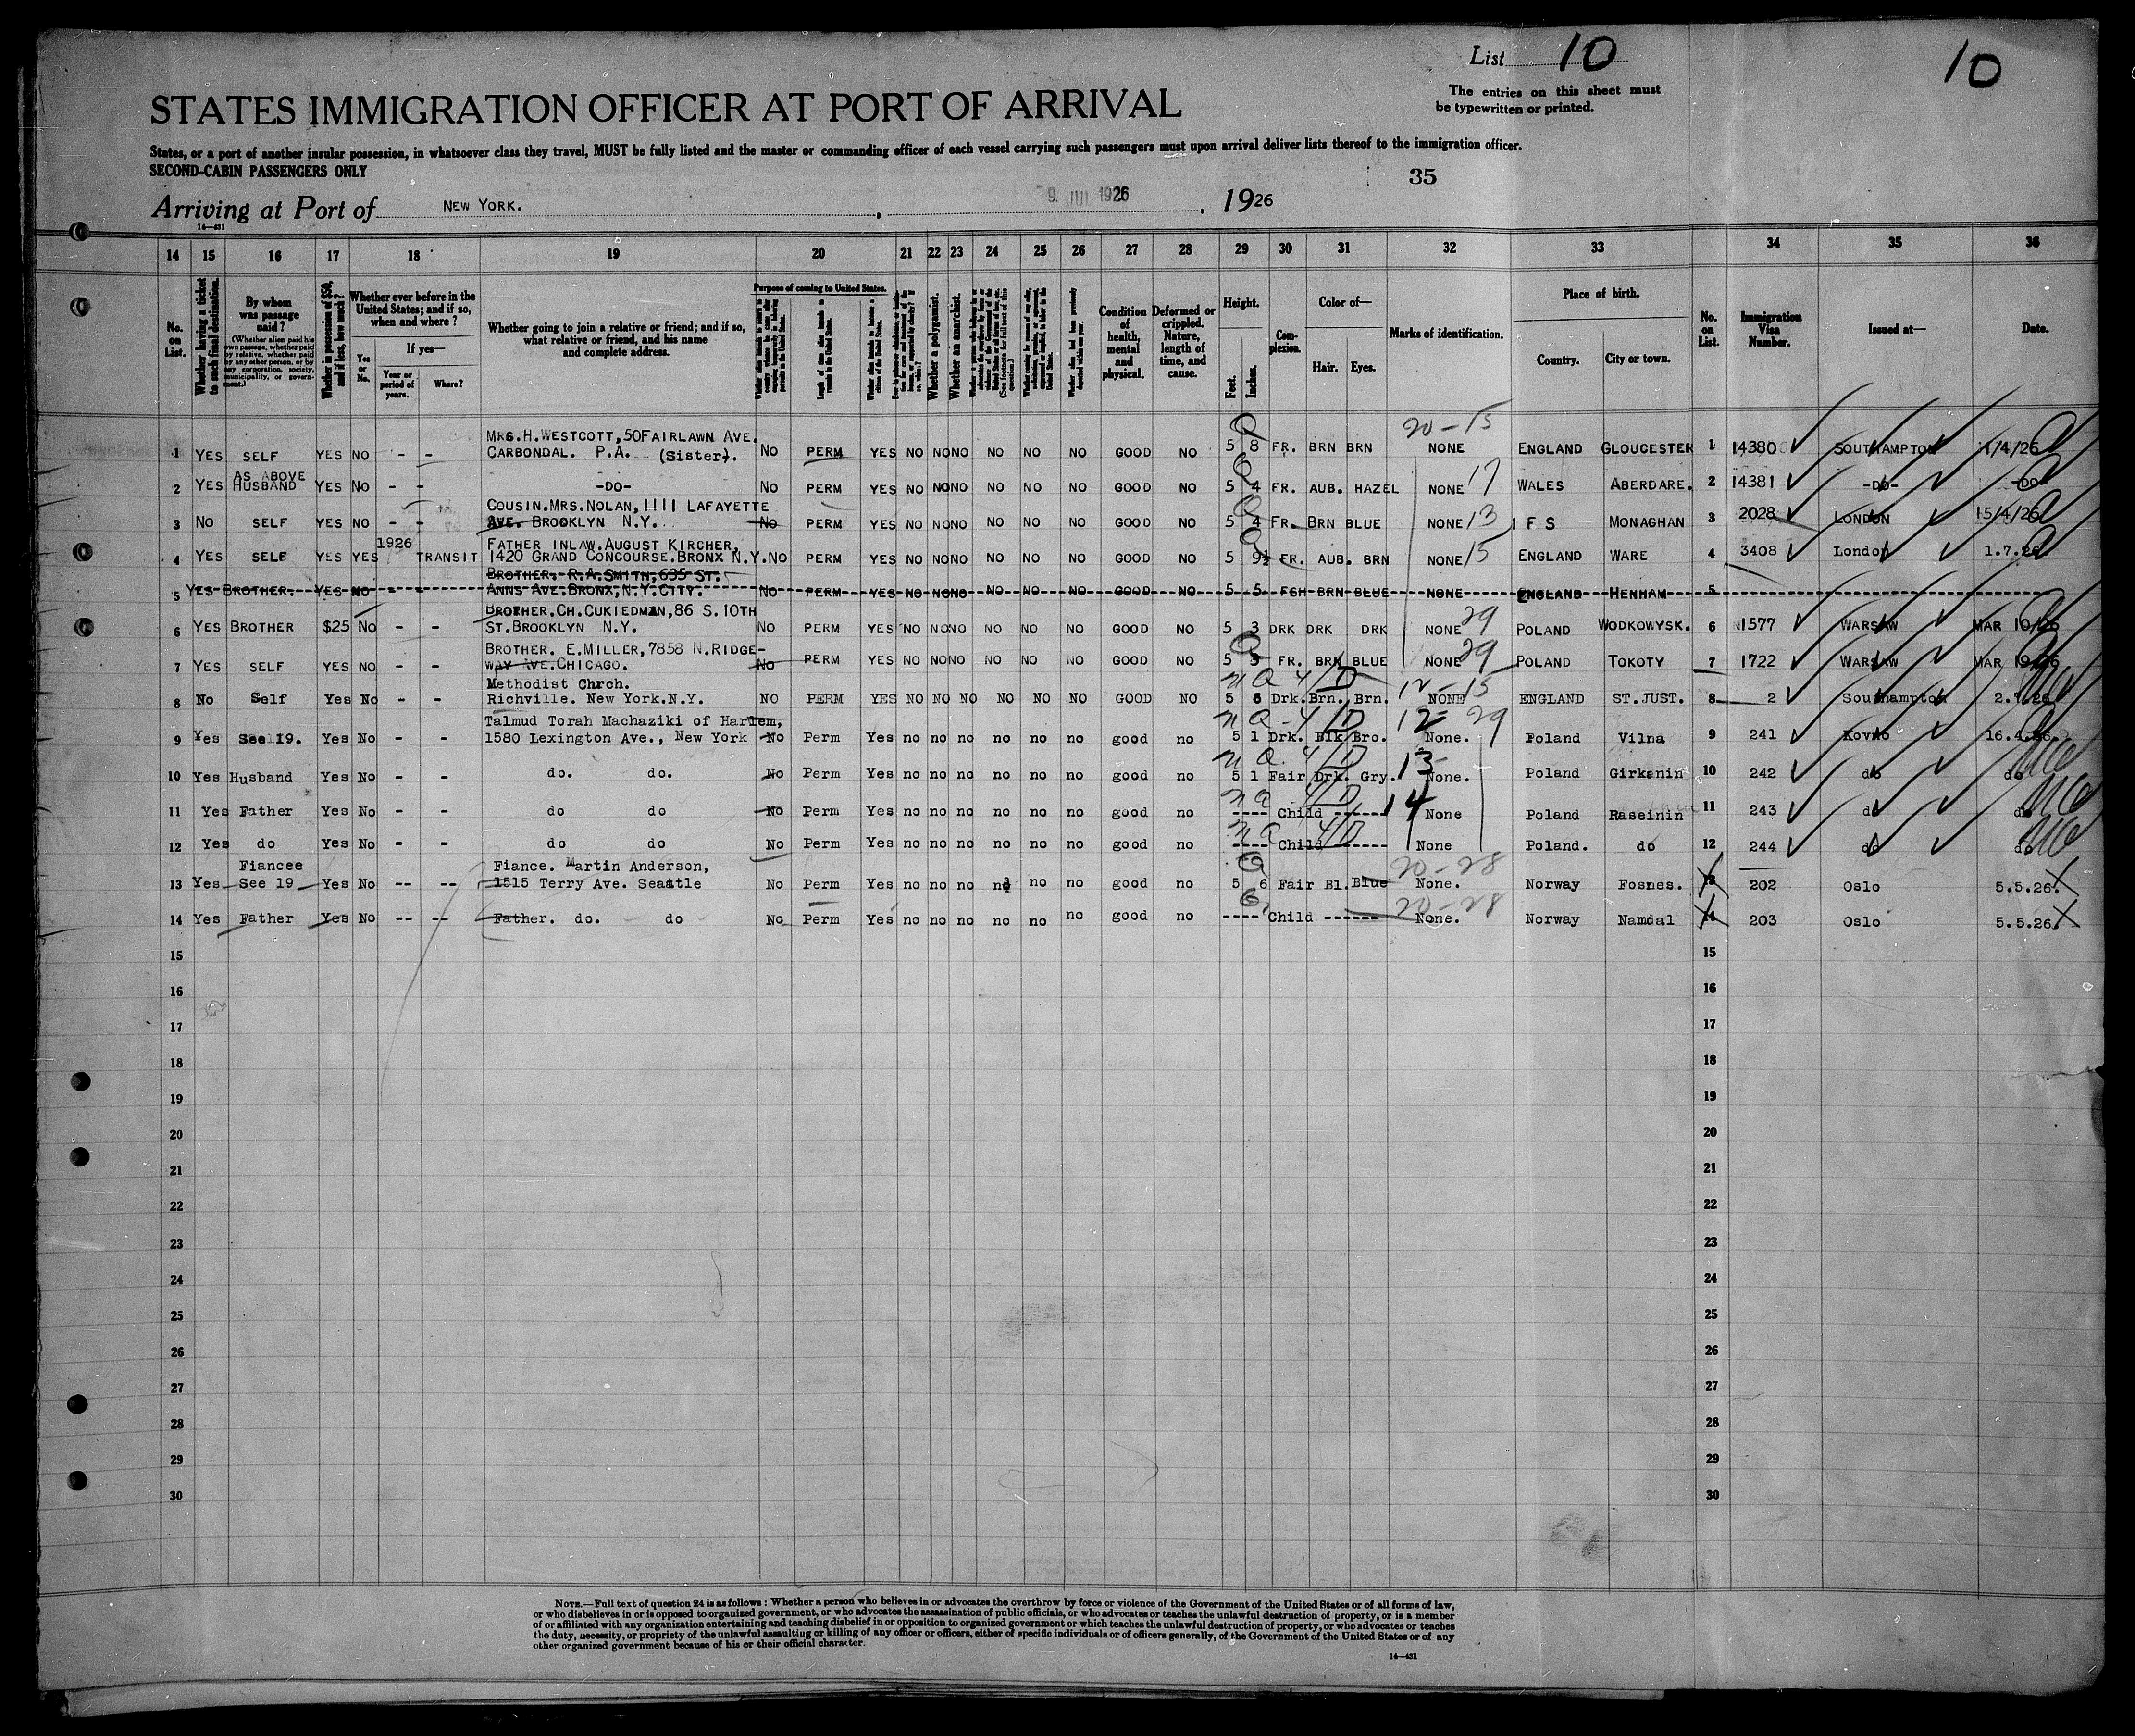 List 10
10
The entries on this sheet must
be typewritten or printed.
STATES IMMIGRATION OFFICER AT PORT OF ARRIVAL
States, or a port of another insular possession, in whatsoever class they travel, MUST be fully listed and the master or commanding officer of each vessel carrying such passengers must upon arrival deliver lists thereof to the immigration officer.
SECOND-CABIN PASSENGERS ONLY
35
Arriving at Port of NEW YORK. , 9 1926 , 1926
14—431
14 15 16 17 18 19 20 21 22 23 24 25 26 27 28 29 30 31 32 33 34 35 36
No. on List.
Whether having a ticket to such final destination.
By whom was passage paid?
(Whether alien paid his own passage, whether paid by relative, whether paid by any other person, or by any corporation, society, municipality, or government.)
Whether in possession of $50, and if less, how much?
Whether ever before in the United States; and if so, when and where?
Yes or No.
If yes—
Year or period of years.
Where?
Whether going to join a relative or friend; and if so, what relative or friend, and his name and complete address.
Purpose of coming to United States.
Length of time alien intends to remain in the United States.
Whether alien intends to become a citizen of the United States.
Whether a polygamist.
Whether an anarchist.
Condition of health, mental and physical.
Deformed or crippled. Nature, length of time, and cause.
Height.
Feet.
Inches.
Complexion.
Color of—
Hair.
Eyes.
Marks of identification.
Place of birth.
Country.
City or town.
No. on List.
Immigration Visa Number.
Issued at—
Date.
20-15
MRS.H.WESTCOTT,50FAIRLAWN AVE.
1 YES SELF YES NO - - CARBONDAL. P.A. (Sister). NO PERM YES NO NO NO NO NO NO GOOD NO 5 8 FR. BRN BRN NONE ENGLAND GLOUCESTER 1 14380 SOUTHAMPTON /4/26
AS ABOVE
2 YES HUSBAND YES NO - - -DO- NO PERM YES NO NO NO NO NO NO GOOD NO 5 4 FR. AUB. HAZEL NONE 17 WALES ABERDARE. 2 14381 -DO- -DO-
COUSIN.MRS.NOLAN,1111 LAFAYETTE
3 NO SELF YES NO - - AVE. BROOKLYN N.Y. NO PERM YES NO NO NO NO NO NO GOOD NO 5 4 FR. BRN BLUE NONE 13 I F S MONAGHAN 3 2028 LONDON 15/4/26
1926 FATHER INLAW.AUGUST KIRCHER,
4 YES SELF YES YES TRANSIT 1420 GRAND CONCOURSE.BRONX N.Y. NO PERM YES NO NO NO NO NO NO GOOD NO 5 9½ FR. AUB. BRN NONE 15 ENGLAND WARE 4 3408 London 1.7.26
BROTHER. R.A.SMITH,635 ST.
5 YES BROTHER. YES NO - - ANNS AVE.BRONX,N.Y.CITY. NO PERM YES NO NO NO NO NO NO GOOD NO 5 5 FSH BRN BLUE NONE ENGLAND HENHAM 5
BROTHER.CH.CUKIEDMAN,86 S.10TH
6 YES BROTHER $25 NO - - ST.BROOKLYN N.Y. NO PERM YES NO NO NO NO NO NO GOOD NO 5 3 DRK DRK DRK NONE 29 POLAND WODKOWYSK. 6 1577 WARSAW MAR 10/26
BROTHER. E.MILLER,7858 N.RIDGE-
7 YES SELF YES NO - - WAY AVE.CHICAGO. NO PERM YES NO NO NO NO NO NO GOOD NO 5 3 FR. BRN BLUE NONE 29 POLAND TOKOTY 7 1722 WARSAW MAR 19/26
Methodist Chrch.
8 No Self Yes No - - Richville. New York.N.Y. NO PERM YES NO NO NO NO NO NO GOOD NO 5 6 Drk. Brn. Brn. NONE 12-15 ENGLAND ST.JUST. 8 2 Southampton 2.7.26
Talmud Torah Machaziki of Harlem,
9 Yes See 19. Yes No - - 1580 Lexington Ave., New York No Perm Yes no no no no no no good no 5 1 Drk. Blk Bro. None. 12 29 Poland Vilna 9 241 Kovno 16.4.26.
10 Yes Husband Yes No - - do. do. No Perm Yes no no no no no no good no 5 1 Fair Drk. Gry. 13 None. Poland Girkanin 10 242 do do
11 Yes Father Yes No - - do do No Perm Yes no no no no no no good no ---- Child ------ 14 None Poland Raseinin 11 243 do do
12 Yes do Yes No - - do do No Perm Yes no no no no no no good no ---- Child ------ None Poland. do 12 244 do do
Fiancee Fiance. Martin Anderson, 20-28
13 Yes See 19 Yes No -- -- 1515 Terry Ave. Seattle No Perm Yes no no no no no no good no 5 6 Fair Bl. Blue None. Norway Fosnes. 13 202 Oslo 5.5.26.
20-28
14 Yes Father Yes No -- -- Father. do. do No Perm Yes no no no no no no good no ---- Child ------ None. Norway Namdal 14 203 Oslo 5.5.26.
15 15
16 16
17 17
18 18
19 19
20 20
21 21
22 22
23 23
24 24
25 25
26 26
27 27
28 28
29 29
30 30
NOTE.—Full text of question 24 is as follows: Whether a person who believes in or advocates the overthrow by force or violence of the Government of the United States or of all forms of law,
or who disbelieves in or is opposed to organized government, or who advocates the assassination of public officials, or who advocates or teaches the unlawful destruction of property, or is a member
of or affiliated with any organization entertaining and teaching disbelief in or opposition to organized government or which teaches the unlawful destruction of property, or who advocates or teaches
the duty, necessity, or propriety of the unlawful assaulting or killing of any officer or officers, either of specific individuals or of officers generally, of the Government of the United States or of any
other organized government because of his or their official character.
14—431